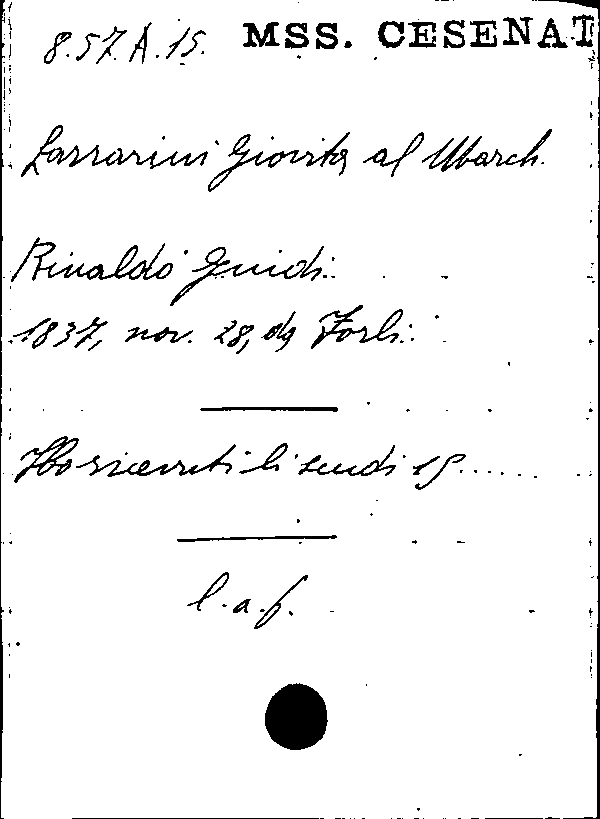 8.57.A.15. MSS. CESENAT
Lazzarini Giovita al March.
Rinaldo Guidi.
1837, nov. 28, da Forlì.
Ho ricevuti li scudi 15.....
l.a.f.